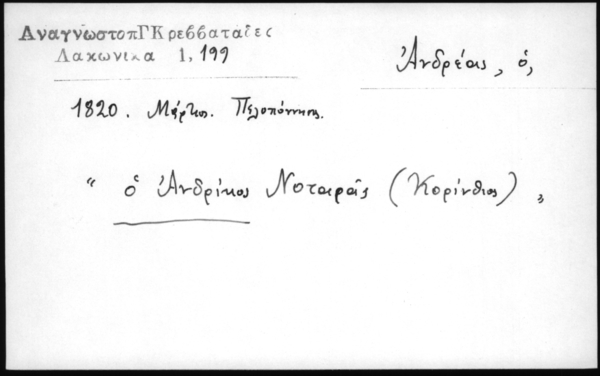 ΑναγνωστοπΓΚρεββαταῖες
Λακωνικα 1, 199
Ἀνδρέας, ὁ,
1820. Μάρτιος. Πελοπόννησος.
“ ὁ Ἀνδρίκος Νοταρᾶς (Κορίνθιος) „